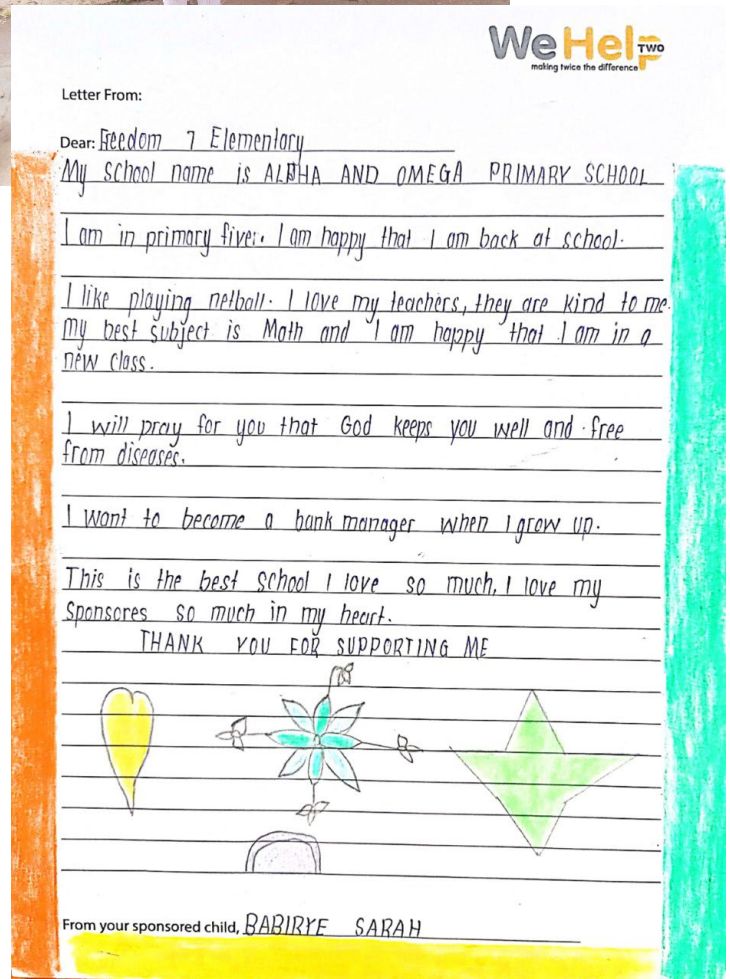 We Help TWO
making twice the difference
Letter From:
Dear: Freedom 7 Elementary
My school name is ALPHA AND OMEGA PRIMARY SCHOOL
I am in primary five. I am happy that I am back at school.
I like playing netball. I love my teachers, they are kind to me.
my best subject is Math and I am happy that I am in a
new class.
I will pray for you that God keeps you well and free
from diseases.
I want to become a bank manager when I grow up.
This is the best school I love so much, I love my
Sponsores so much in my heart.
THANK YOU FOR SUPPORTING ME
From your sponsored child, BABIRYE SARAH